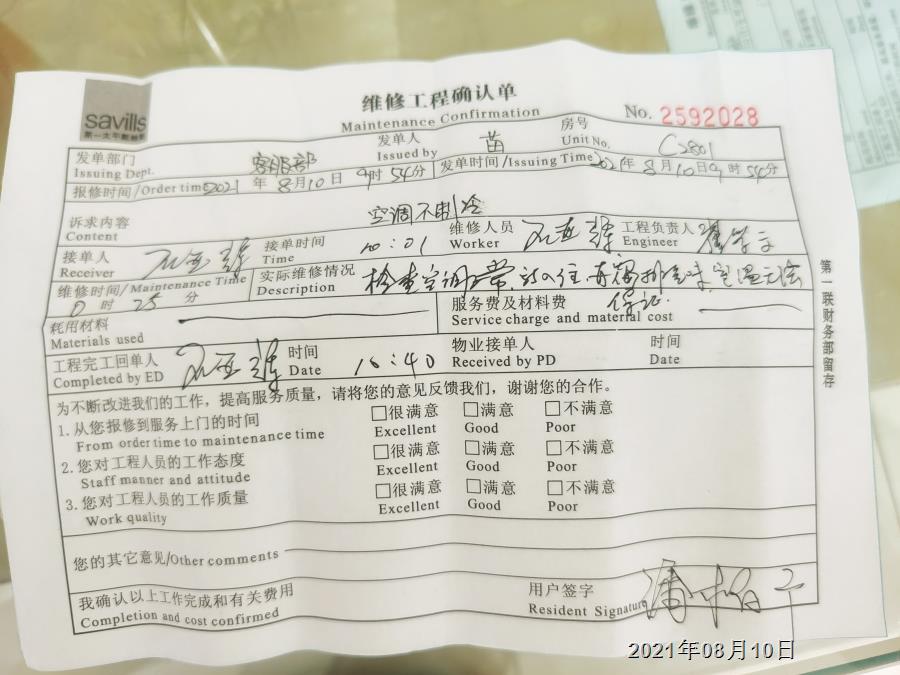 savills
第一太平戴维斯
维修工程确认单
Maintenance Confirmation
No. 2592028
发单部门 客服部 发单人 苗 房号 C2801
Issuing Dept. Issued by Unit No.
报修时间/Order time 2021年8月10日9时54分 发单时间/Issuing Time 2021年8月10日9时54分
诉求内容 空调不制冷
Content
接单人 接单时间 10:01 维修人员 工程负责人
Receiver Time Worker Engineer
维修时间/Maintenance Time 实际维修情况 检查空调正常
0时25分 Description
耗用材料 服务费及材料费 保证.
Materials used Service charge and material cost
工程完工回单人 时间 10:40 物业接单人 时间
Completed by ED Date Received by PD Date
为不断改进我们的工作，提高服务质量，请将您的意见反馈我们，谢谢您的合作。
1.从您报修到服务上门的时间 □很满意 □满意 □不满意
From order time to maintenance time Excellent Good Poor
2.您对工程人员的工作态度 □很满意 □满意 □不满意
Staff manner and attitude Excellent Good Poor
3.您对工程人员的工作质量 □很满意 □满意 □不满意
Work quality Excellent Good Poor
您的其它意见/Other comments
我确认以上工作完成和有关费用 用户签字
Completion and cost confirmed Resident Signature
第一联财务部留存
2021年08月10日